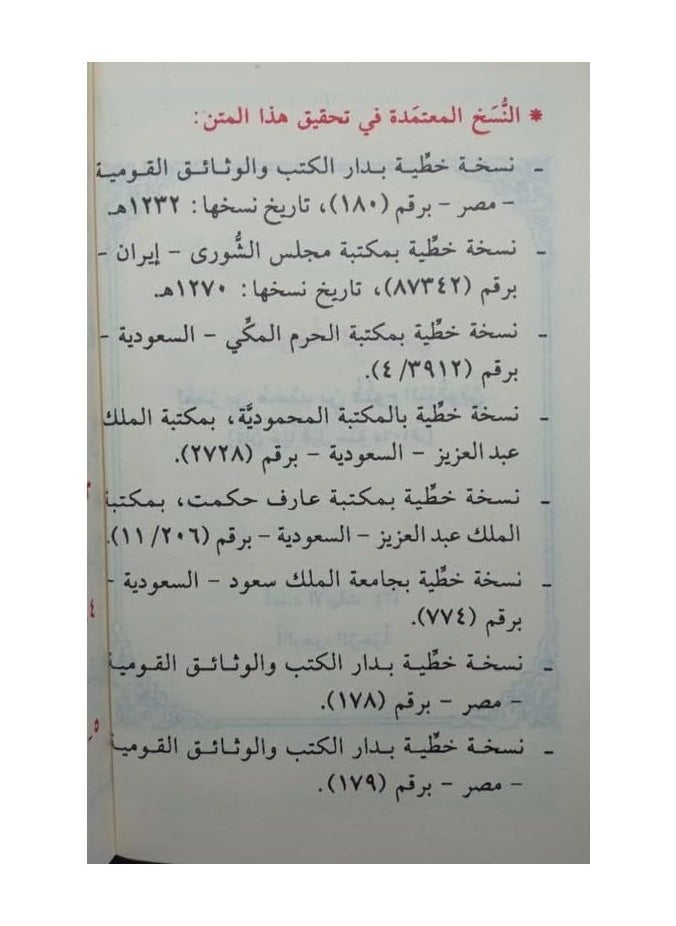 * النُّسَخ المعتمَدة في تحقيق هذا المتن:
- نسخة خطِّية بدار الكتب والوثائق القومية
- مصر - برقم (١٨٠)، تاريخ نسخها: ١٢٣٢هـ.
- نسخة خطِّية بمكتبة مجلس الشُّورى - إيران -
برقم (٨٧٣٤٢)، تاريخ نسخها: ١٢٧٠هـ.
- نسخة خطِّية بمكتبة الحرم المكِّي - السعودية -
برقم (٤/٣٩١٢).
- نسخة خطِّية بالمكتبة المحموديَّة، بمكتبة الملك
عبد العزيز - السعودية - برقم (٢٧٢٨).
- نسخة خطِّية بمكتبة عارف حكمت، بمكتبة
الملك عبد العزيز - السعودية - برقم (١١/٢٠٦).
- نسخة خطِّية بجامعة الملك سعود - السعودية -
برقم (٧٧٤).
- نسخة خطِّية بدار الكتب والوثائق القومية
- مصر - برقم (١٧٨).
- نسخة خطِّية بدار الكتب والوثائق القومية
- مصر - برقم (١٧٩).